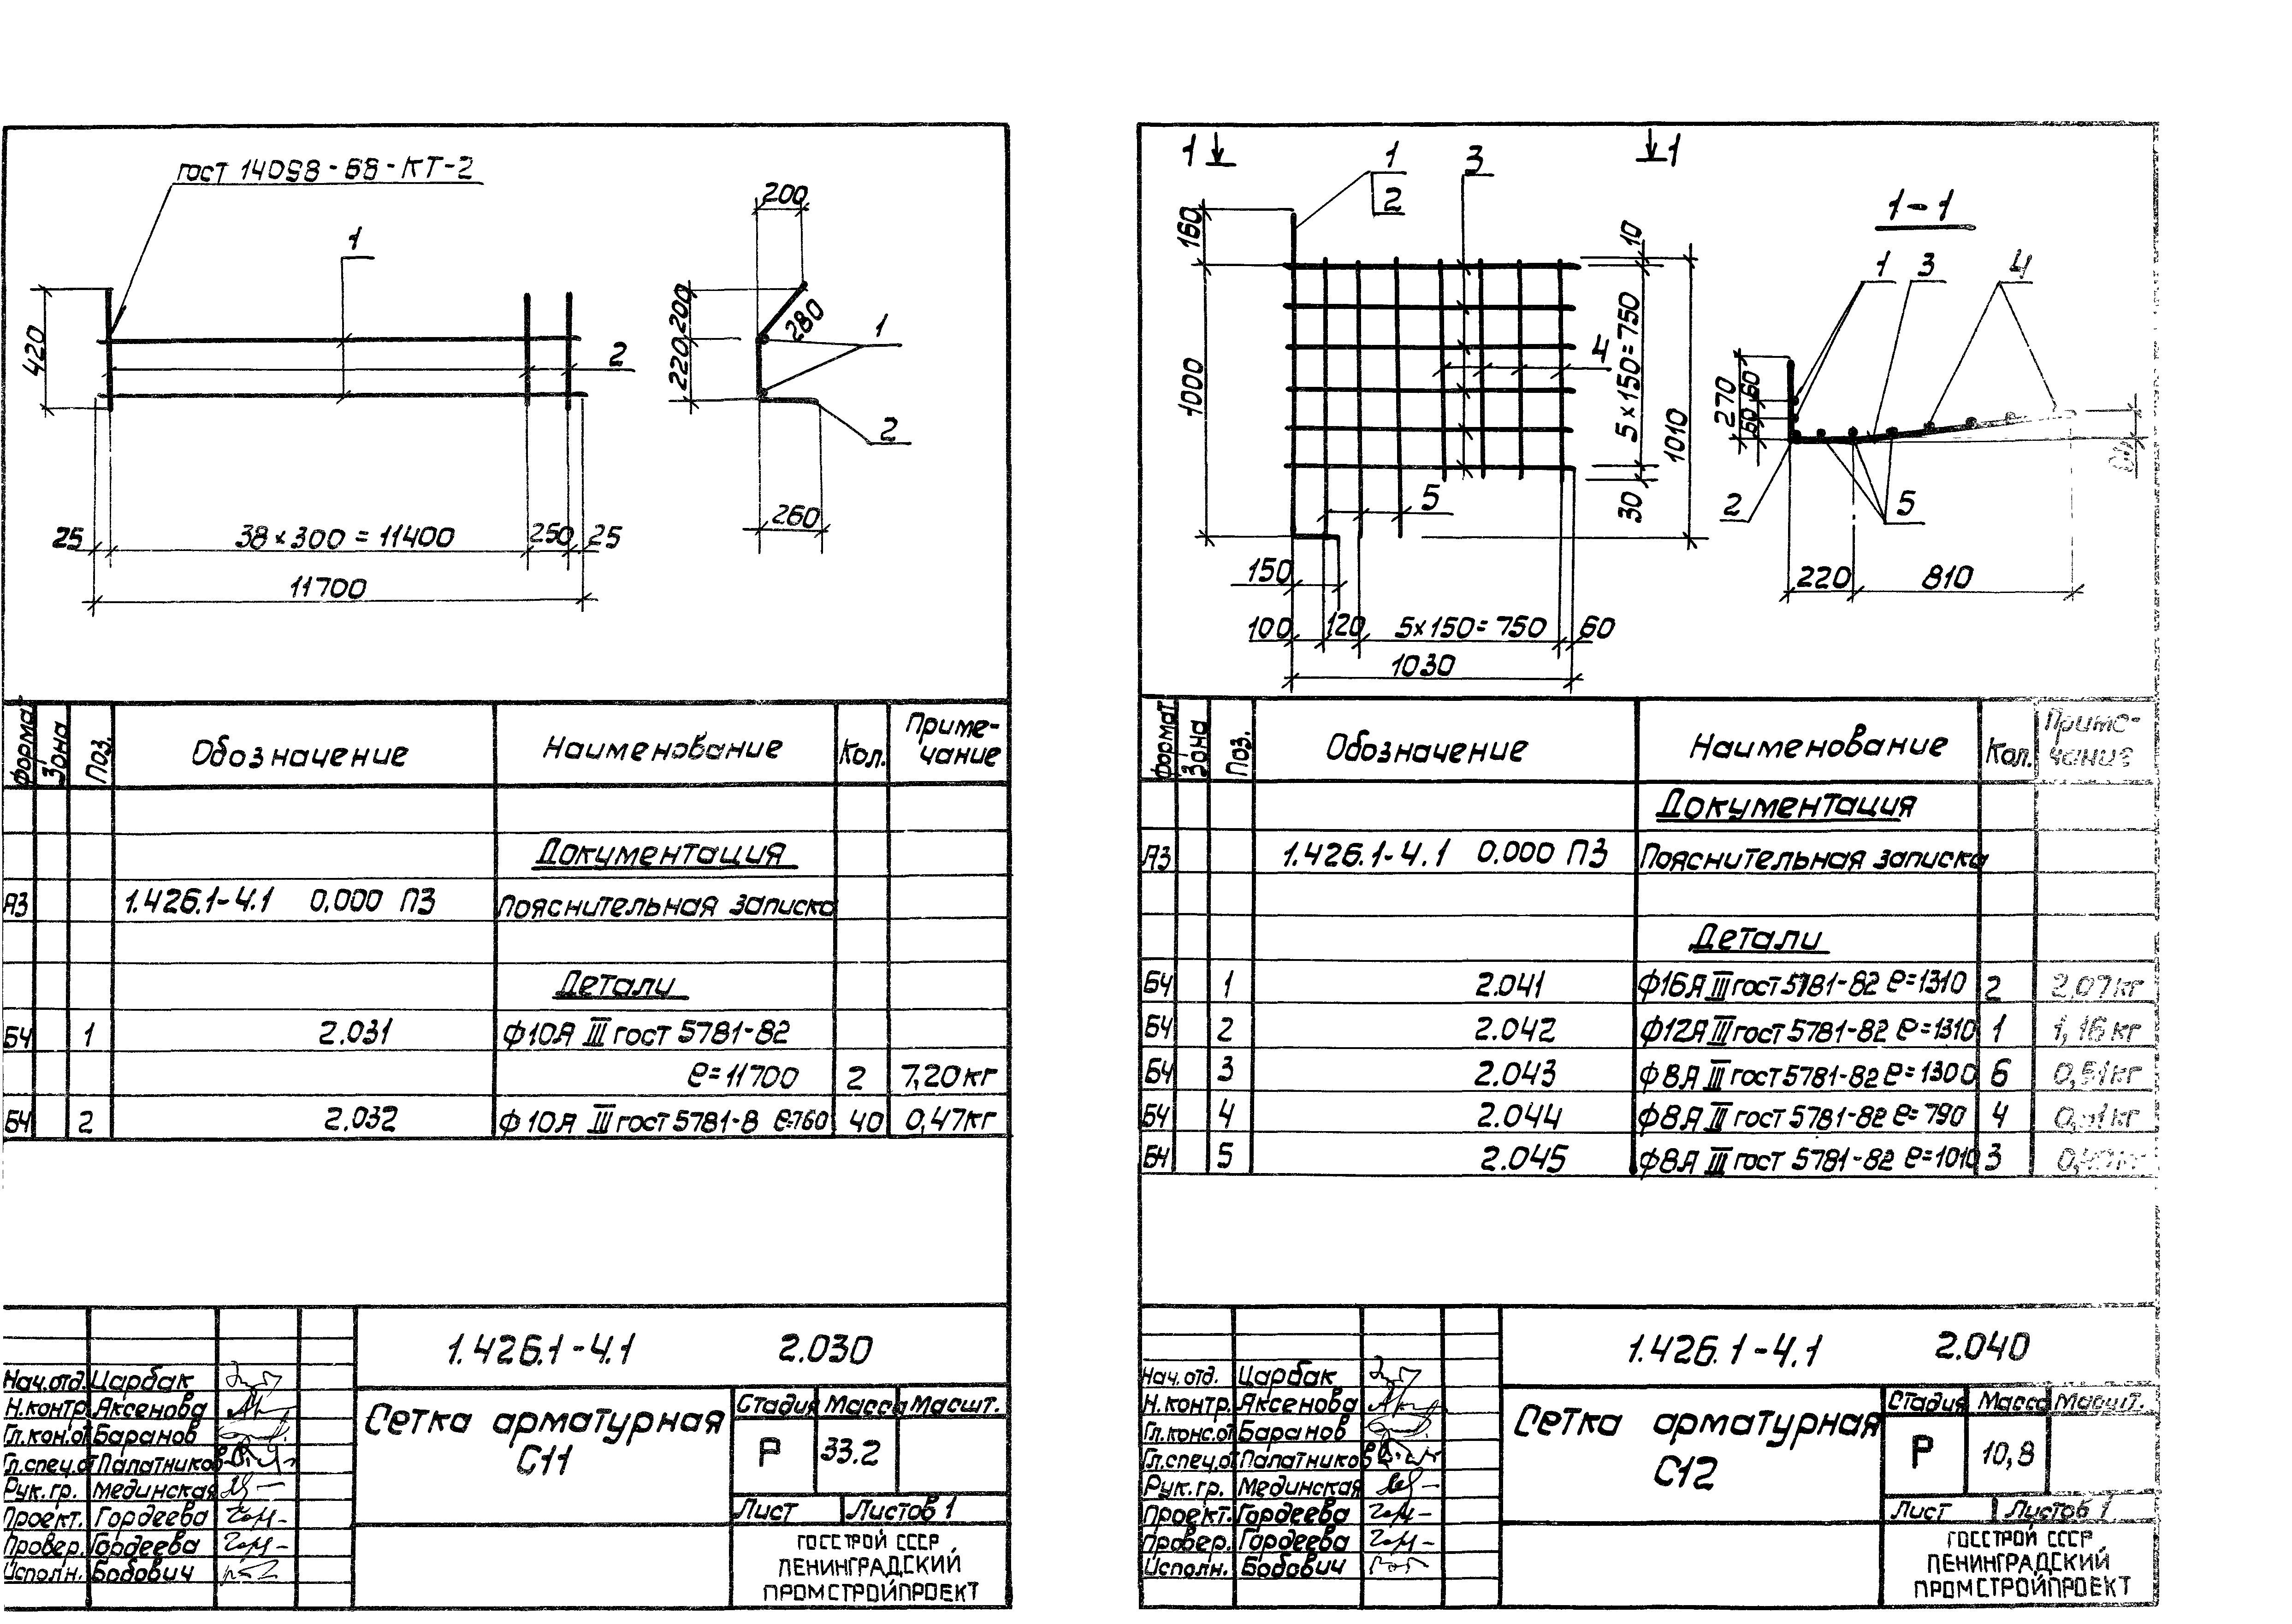 ГОСТ 14098-68-КТ-2
1
2
420
25
38×300=11400
250
25
11700
200
200
220
280
1
2
260
Формат
Зона
Поз.
Обозначение
Наименование
Кол.
Приме-
чание
Документация
А3 1.426.1-4.1 0.000 ПЗ Пояснительная записка
Детали
БЧ 1 2.031 Ф10А III ГОСТ 5781-82
ℓ=11700 2 7,20кг
БЧ 2 2.032 Ф10А III ГОСТ 5781-8 ℓ=760 40 0,47кг
1.426.1-4.1 2.030
Нач.отд. Царбак
Н.контр. Аксенова
Гл.кон.от Баранов
Гл.спец.от Палатников
Рук.гр. Мединская
Проект. Гордеева
Провер. Гордеева
Исполн. Бобович
Сетка арматурная
С11
Стадия Масса Масшт.
Р 33.2
Лист Листов 1
ГОССТРОЙ СССР
ЛЕНИНГРАДСКИЙ
ПРОМСТРОЙПРОЕКТ
1 1
1
2
3
4
5
160
1000
10
5×150=750
30
1010
150
100 120 5×150=750 60
1030
1-1
1 3 4
270
60
60
2
5
220 810
Формат
Зона
Поз.
Обозначение
Наименование
Кол.
Приме-
чание
Документация
А3 1.426.1-4.1 0.000 ПЗ Пояснительная записка
Детали
БЧ 1 2.041 Ф16А III ГОСТ 5781-82 ℓ=1310 2 2,07кг
БЧ 2 2.042 Ф12А III ГОСТ 5781-82 ℓ=1310 1 1,16кг
БЧ 3 2.043 Ф8А III ГОСТ 5781-82 ℓ=1300 6 0,51кг
БЧ 4 2.044 Ф8А III ГОСТ 5781-82 ℓ=790 4 0,31кг
БЧ 5 2.045 Ф8А III ГОСТ 5781-82 ℓ=1010 3
1.426.1-4.1 2.040
Нач.отд. Царбак
Н.контр. Аксенова
Гл.конс.от Баранов
Гл.спец.о Палатников
Рук.гр. Мединская
Проект. Гордеева
Провер. Гордеева
Исполн. Бобович
Сетка арматурная
С12
Стадия Масса Масшт.
Р 10,8
Лист Листов 1
ГОССТРОЙ СССР
ЛЕНИНГРАДСКИЙ
ПРОМСТРОЙПРОЕКТ